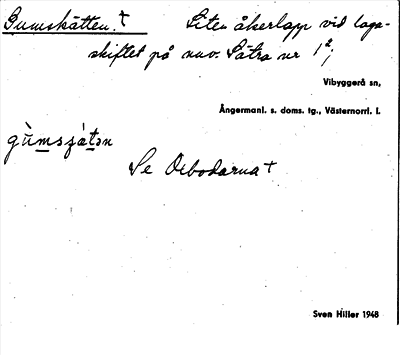 Gumskätten.† Liten åkerlapp vid laga-
skiftet på nuv. Sätra nr 1²;
Vibyggerå sn,
Ångermanl. s. doms. tg., Västernorrl. l.
gùmsʃátən
Se Oxbodarna†
Sven Hiller 1948